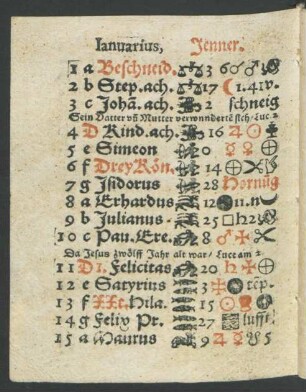 Ianuarius, Jenner.
1 a Beschneid. 3 6☍♂
2 b Step. ach. 17 ☾1.41v.
3 c Johā. ach. 2 schneig
Sein Vatter vñ Mutter verwunderte sich/Luc 2
4 D Kind. ach. 16 ♃☉
5 e Simeon 0 ☿♀
6 f Drey Kön. 14
7 g Isidorus 28 Hornug
8 a Erhardus 12 11.n
9 b Julianus. 25 □♄♃
10 c Pau. Ere. 8 ♂
Da Jesus zwölff Jahr alt war/ Luce am 2
11 D 1. Felicitas 20 ♄
12 e Satyrius 3 tēp.
13 f XXt. Hila. 15
14 g Felix Pr. 27 lufft
15 a Maurus 9 ♃☿